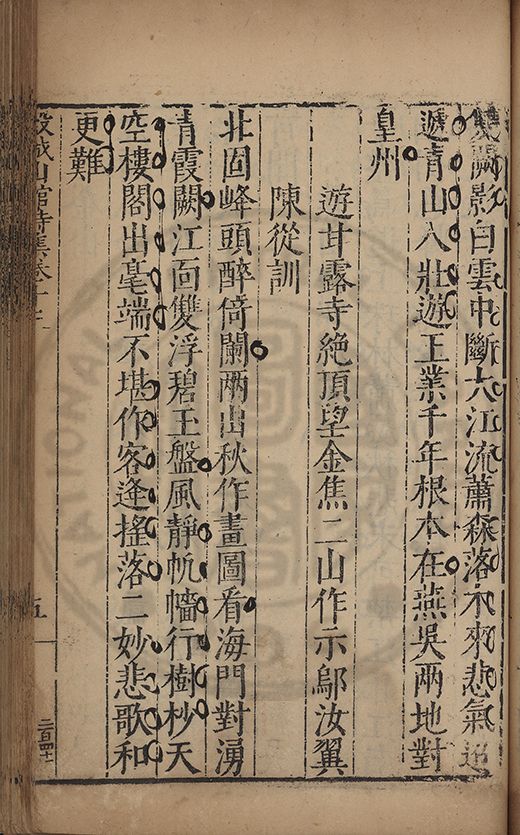 雙闕影白雲中斷大江流蕭森落木來悲氣迢
遞青山入壯遊王業千年根本在燕吳兩地對
皇州
遊甘露寺絶頂望金焦二山作示鄔汝翼
陳從訓
北固峰頭醉倚闌兩山秋作畫圖看海門對湧
青霞闕江面雙浮碧玉盤風靜帆檣行樹杪天
空樓閣出毫端不堪作客逢搖落二妙悲歌和
更難
穀城山館詩集卷十
五